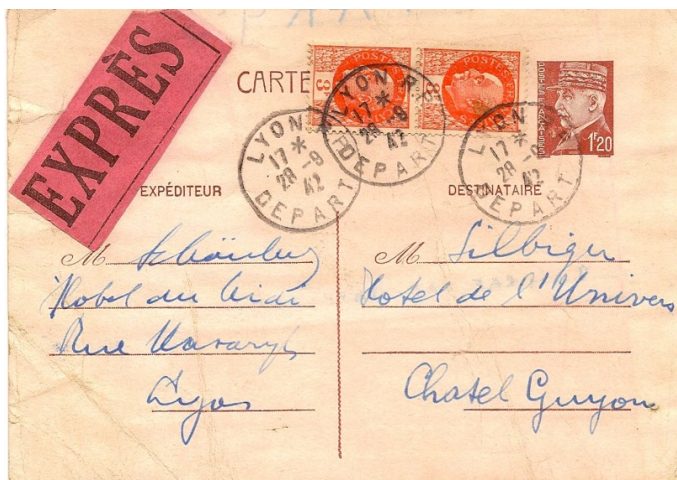 EXPRÈS
CARTE
POSTES
3F
POSTES
3F
1f20
LYON R.P.
17 *
28-9
42
DEPART
LYON R.P.
17 *
28-9
42
DEPART
LYON R.P.
17 *
28-9
42
DEPART
EXPÉDITEUR
M
Hotel du Midi
Rue
Lyon
DESTINATAIRE
M Silbiger
Hotel de l'Univers
Chatel Guyon